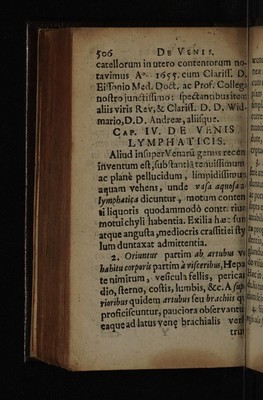 506 DE VENIS.
catellorum in utero contentorum no-
tavimus A° 1655. cum Clariss. D.
Eissonio Med. Doct. ac Prof. Collega
nostro junctissimo: spectantibus item
aliis viris Rev. & Clariss. D. D. Wid-
mario, D.D. Andreæ, aliisque.
CAP. IV. DE VENIS
LYMPHATICIS.
Aliud insuper Venarū genus recens
inventum est, substantiâ tenuissimum
ac planè pellucidum, limpidissimum
aquam vehens, unde vasa aquosa &
lymphatica dicuntur, motum conten
ti liquoris quodammodò contrarium
motui chyli habentia. Exilia hæc sunt
atque angusta, mediocris crassitiei sty
lum duntaxat admittentia.
2. Oriuntur partim ab artubus &
habitu corporis partim à visceribus, Hepa
te nimirum, vesicula fellis, pericar
dio, sterno, costis, lumbis, &c. A supe
rioribus quidem artubus seu brachiis
proficiscuntur, pauciora observantur
eaque ad latus venę brachialis